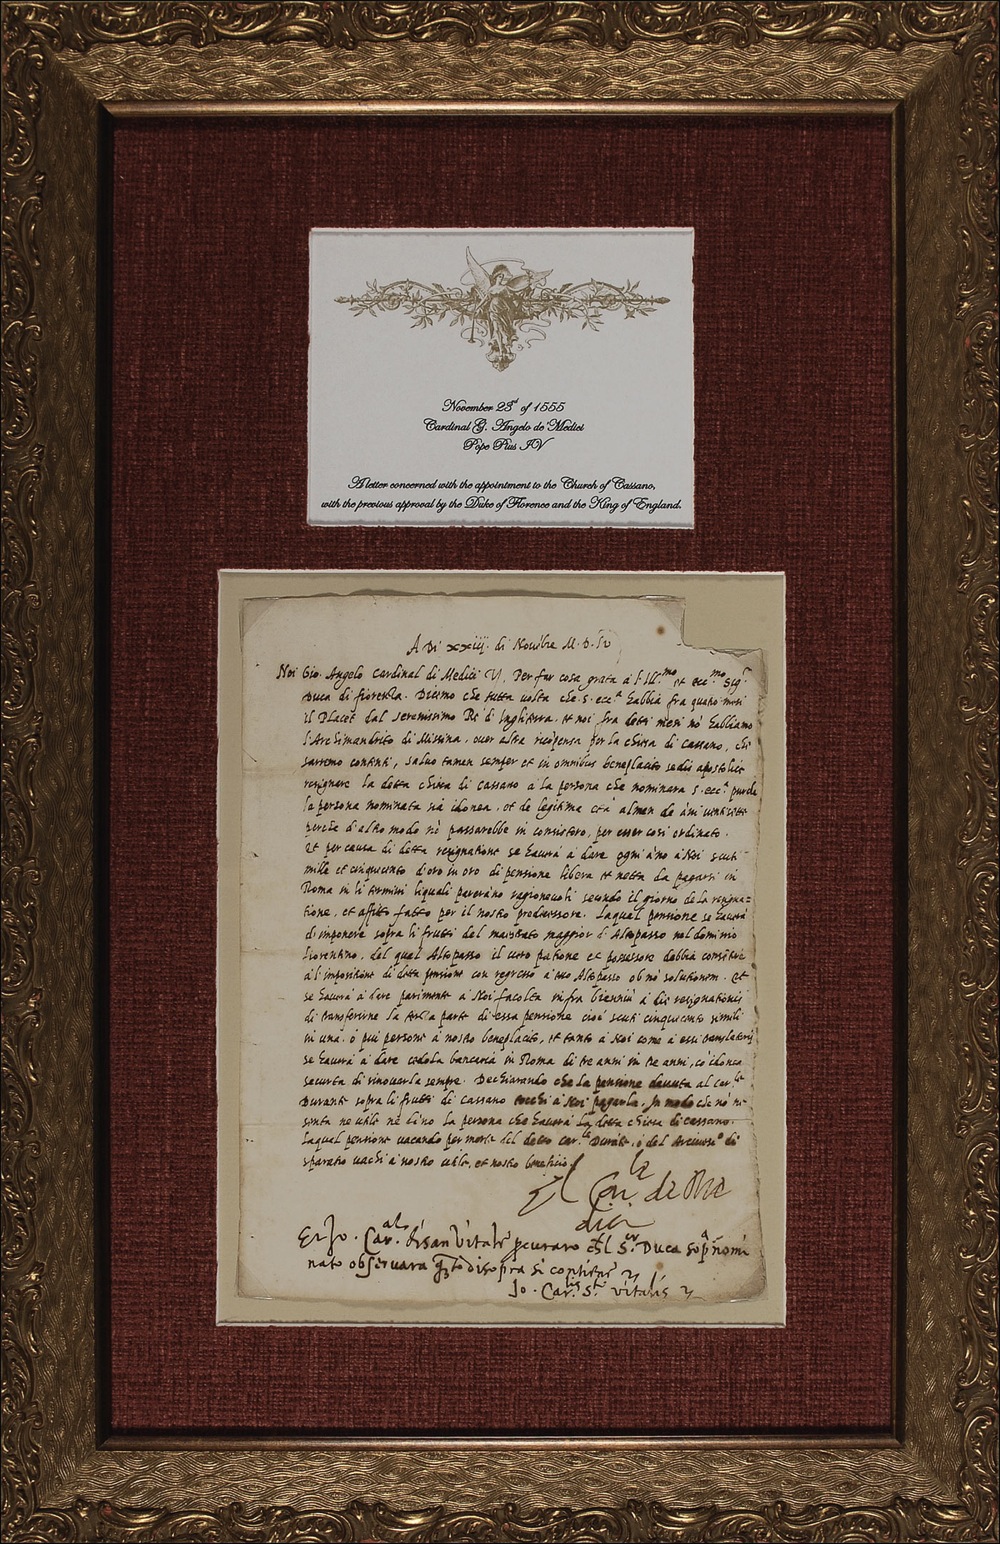 November 23d of 1555
Cardinal G. Angelo de Medici
Pope Pius IV
A letter concerned with the appointment to the Church of Cassano,
with the previous approval by the Duke of Florence and the King of England.
A Di xxiij. di Novẽbre M.D.lv
Noi Gio. Angelo Cardinal di Medici Per far cosa grata a l'Ill.mo et ecc.mo Sig.r
Duca di fiorenza. Dicemo che tutta volta che s. ecc.a habbia fra quatro mesi
il Placet dal serenissimo Re d'Inghilterra, et noi fra detti mesi nõ habbiamo
l'Archimandrito di Missina, over altra ricõpensa per la chiesa di Cassano,
saremo contenti, salvo tamen semper et in omnibus beneplacito sedis apostolice
resignare la detta chiesa di Cassano a la persona che nominara s. ecc.a purche
la persona nominata sia idonea, et de legitima età alman de anni
perche d'altro modo nõ passarebbe in consistoro, per esser cosi ordinato.
Et per causa di detta resignatione se havrà à dare ogni año a Noi scuti
mille et cinquecento d'oro in oro di pensione libera et netta da pagarsi in
Roma in li termini liquali pareranno ragionevoli secondo il giorno de la resigna=
tione, et affitto fatto per il nostro predicessore. Laqual pensione se havrà
di imponere sopra li frutti del maistrato maggior d'Altopasso nel dominio
fiorentino, del qual Altopasso il vero patrone et possessore debbia consentire
a l'impositione di detta pensione con regresso a esso Altopasso ob nõ solutionem. Et
se havrà à dare parimente a Noi facoltà infra biennium a die resignationis
di transferire la terza parte di essa pensione cioè scuti cinquecento simili
in una ò piu persone à nostro beneplacito, et tanto a Noi come a essi
se havrà à dare cedola bancaria in Roma di tre anni in tre anni, cõ idonea
securtà di rinovarla sempre. Dechiarando che la pensione dovuta al Car.le
Durante sopra li frutti di Cassano tocchi a Noi pagarla. In modo che nõ ne
senta ne utile ne dãno la persona che haverà la detta chiesa di Cassano.
Laqual pensione vacando per morte del detto Car.le Durãte, ò del Arcivesc.o di
vachi a nostro utile, et nostro beneficio.
Il Car.le de Me
dici
Et Jo. Car.al di san Vitale procuraro che'l S.or Duca sopra nomi
nato observara quãto disopra si contiene
Jo. Car.lis S.ti vitalis